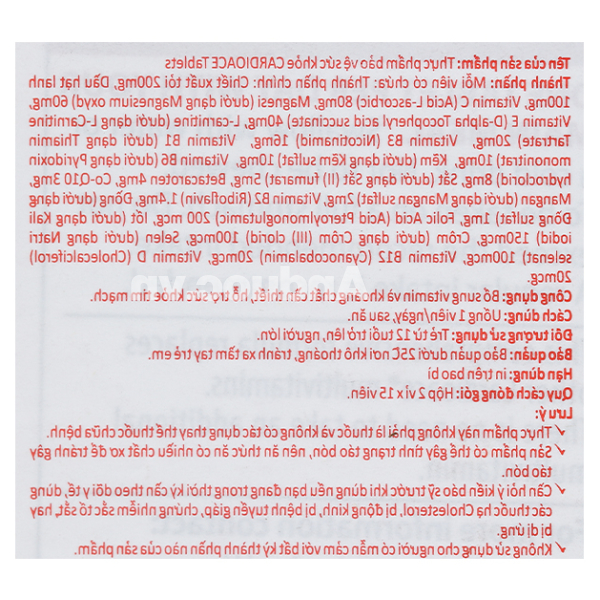 Tên của sản phẩm: Thực phẩm bảo vệ sức khỏe CARDIOACE Tablets
Thành phần: Mỗi viên có chứa: Thành phần chính: Chiết xuất tỏi 200mg, Dầu hạt lanh
100mg, Vitamin C (Acid L-ascorbic) 80mg, Magnesi (dưới dạng Magnesium oxyd) 60mg,
Vitamin E (D-alpha Tocopheryl acid succinate) 40mg, L-carnitine (dưới dạng L-Carnitine
Tartrate) 20mg, Vitamin B3 (Nicotinamid) 16mg, Vitamin B1 (dưới dạng Thiamin
mononitrat) 10mg, Kẽm (dưới dạng Kẽm sulfat) 10mg, Vitamin B6 (dưới dạng Pyridoxin
hydroclorid) 8mg, Sắt (dưới dạng Sắt (II) fumarat) 5mg, Betacaroten 4mg, Co-Q10 3mg,
Mangan (dưới dạng Mangan sulfat) 2mg, Vitamin B2 (Riboflavin) 1.4mg, Đồng (dưới dạng
Đồng sulfat) 1mg, Folic Acid (Acid Pteroylmonoglutamic) 200 mcg, Iốt (dưới dạng Kali
iodid) 150mcg, Crôm (dưới dạng Crôm (III) clorid) 100mcg, Selen (dưới dạng Natri
selenat) 100mcg, Vitamin B12 (Cyanocobalamin) 20mcg, Vitamin D (Cholecalciferol)
20mcg.
Anduoc.vn
Công dụng: Bổ sung vitamin và khoáng chất cần thiết, hỗ trợ sức khỏe tim mạch.
Cách dùng: Uống 1 viên/ngày, sau ăn.
Đối tượng sử dụng: Trẻ từ 12 tuổi trở lên, người lớn.
Bảo quản: Bảo quản dưới 25C nơi khô thoáng, tránh xa tầm tay trẻ em.
Hạn dùng: in trên bao bì
Quy cách đóng gói: Hộp 2 vỉ x 15 viên.
Lưu ý:
✓ Thực phẩm này không phải là thuốc và không có tác dụng thay thế thuốc chữa bệnh.
✓ Sản phẩm có thể gây tình trạng táo bón, nên ăn thức ăn có nhiều chất xơ để tránh gây
táo bón.
✓ Cần hỏi ý kiến bác sỹ trước khi dùng nếu bạn đang trong thời kỳ cần theo dõi y tế, dùng
các thuốc hạ Cholesterol, bị động kinh, bị bệnh tuyến giáp, chứng nhiễm sắc tố sắt, hay
bị dị ứng.
✓ Không sử dụng cho người có mẫn cảm với bất kỳ thành phần nào của sản phẩm.